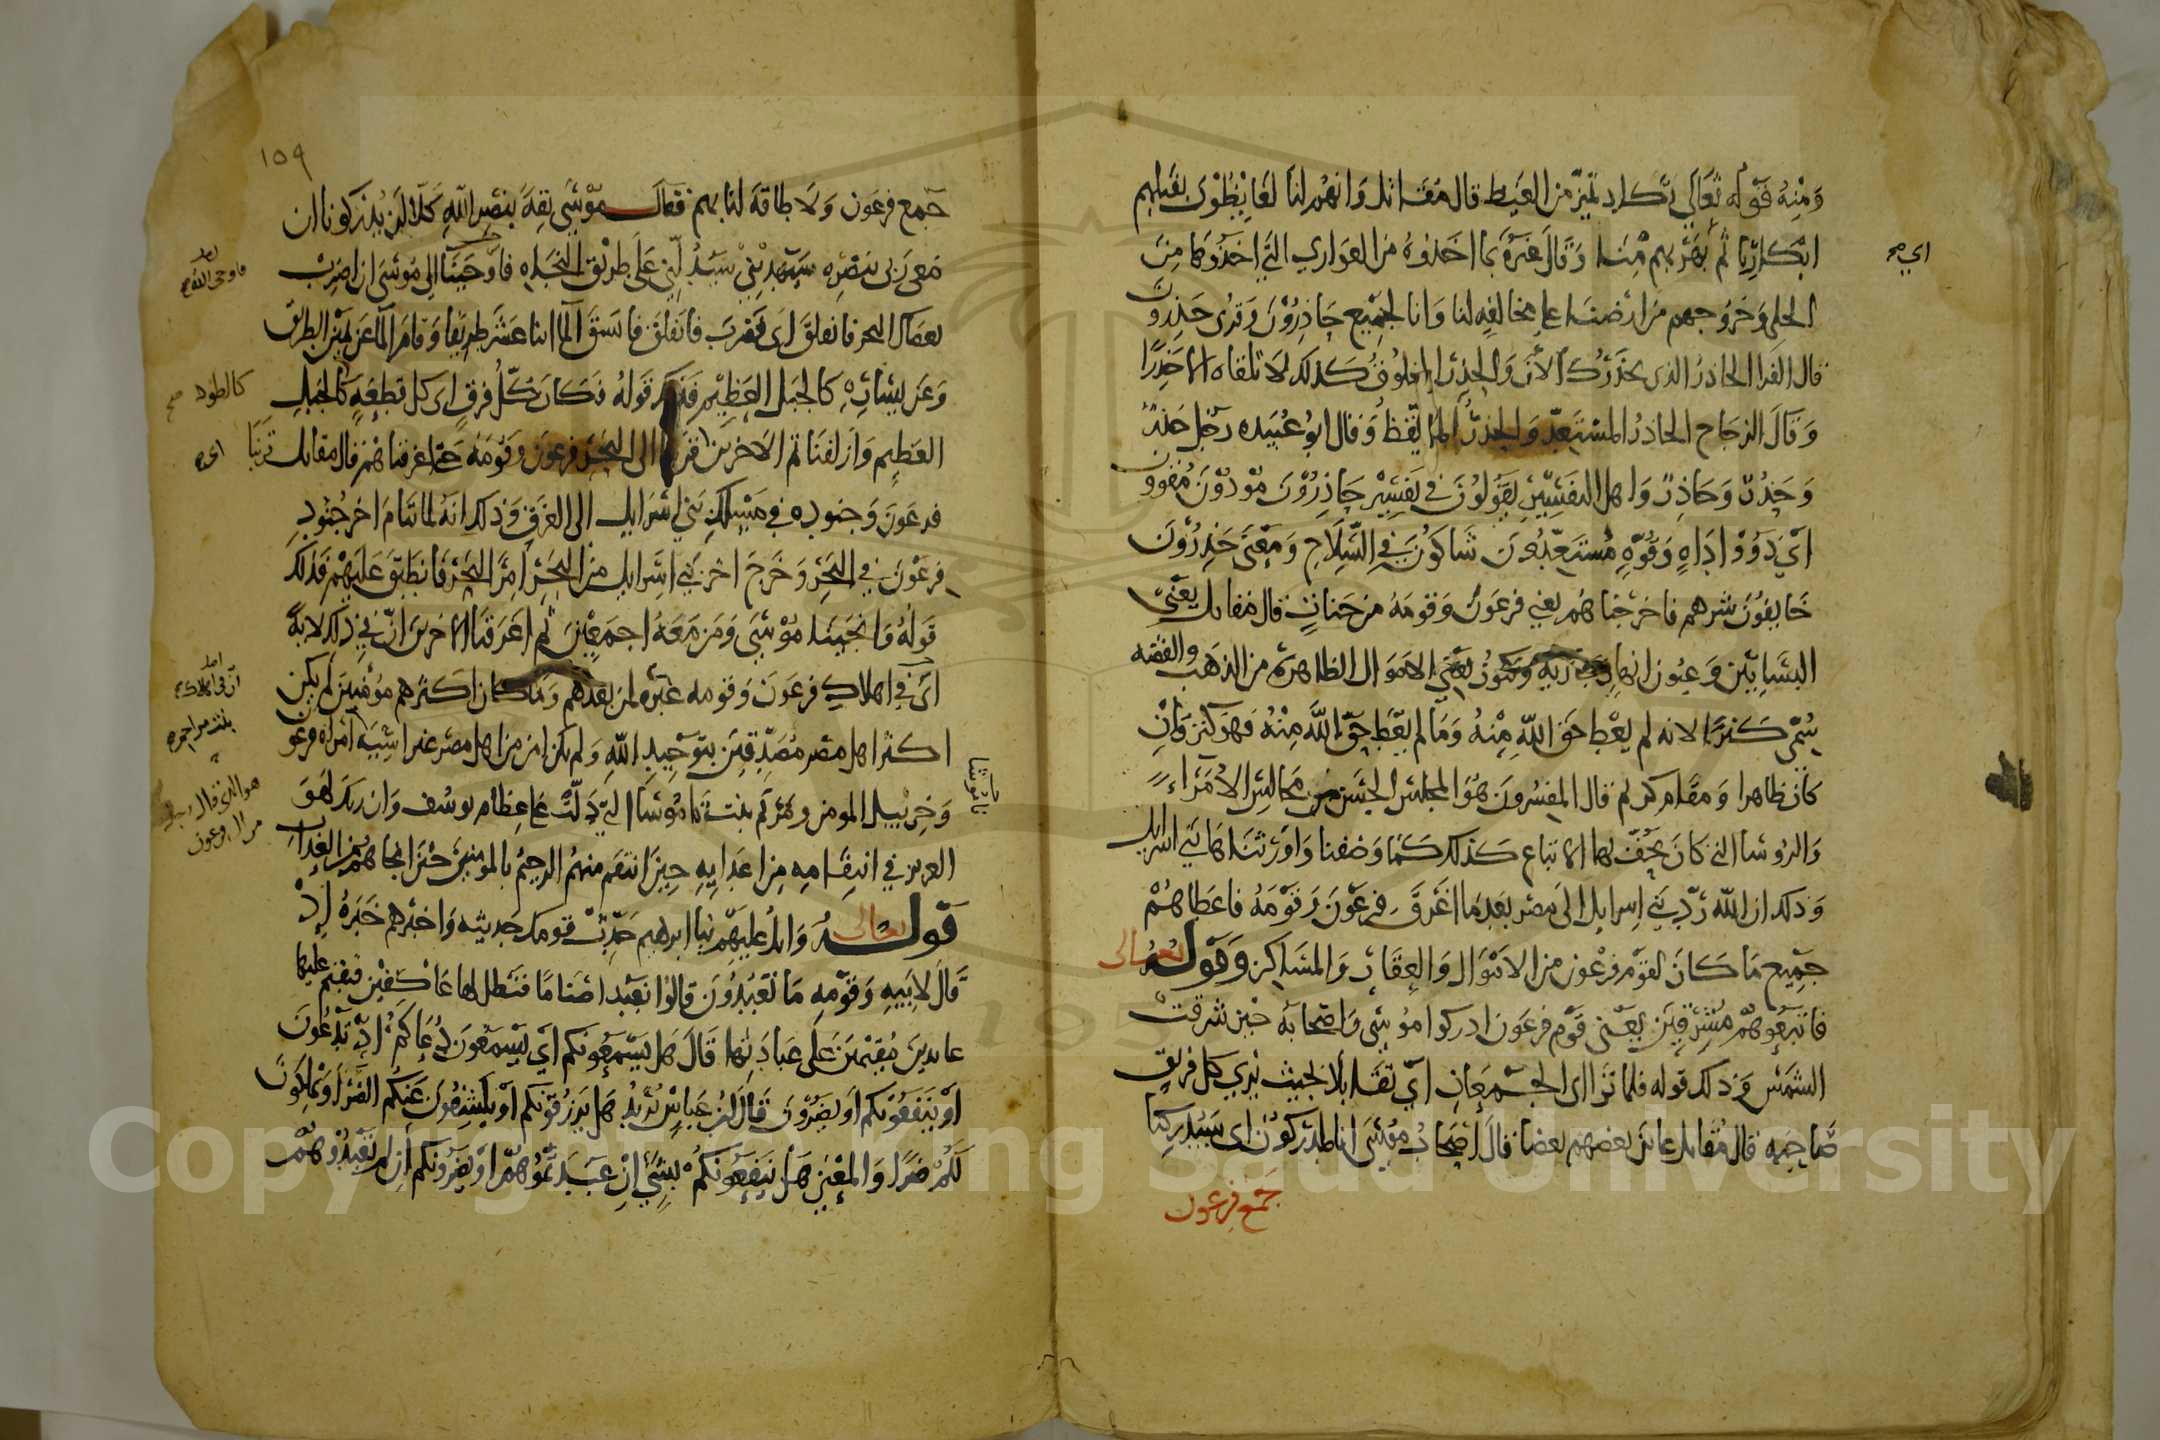 ومنه قوله تعالي تكاد تميز من الغيظ قال مقاتل وانهم لنا لغايظون بقتلهم
ابكارنا ثم بهم منا وقال غيره بما اخذوه من العواري التي اخذوها من
الحلي وخروجهم من ارضنا علي مخالفه لنا وانا لجميع حاذرون وقري حذرون
قال الفرا الحاذر الذي يحذرك الان والحذر المخلوق كذلك لا تلقاه الا حذرا
وقال الزجاج الحاذر المستعد والحذر المتيقظ وقال ابو عبيده رجل حذر
وحذر وحاذر واهل التفسير يقولون في تفسير حاذرون مودون مقوون
اي ذوو اداه وقوه مستعدون شاكون في السلاح ومعني حذرون
خايفون شرهم فاخرجناهم يعني فرعون وقومه من جنات قال مقاتل يعني
البساتين وعيون انهار جاريه وكنوز يعني الاموال الظاهره من الذهب والفضه
سمي كنزا لانه لم يعط حق الله منه وما لم يعط حق الله منه فهو كنز وان
كان ظاهرا ومقام كريم قال المفسرون هو المجلس الحسن من مجالس الامراء
والروسا التي كان يحف بها الاتباع كذلك كما وصفنا واورثناها بني اسرايل
وذلك ان الله رد بني اسرايل الى مصر بعدما اغرق فرعون وقومه فاعطاهم
جميع ما كان لقوم فرعون من الاموال والعقار والمساكن وقوله تعالى
فاتبعوهم مشرقين يعني قوم فرعون ادركوا موسي واصحابه حين شرقت
الشمس وذلك قوله فلما تراءى الجمعان اي تقابلا بحيث يري كل فريق
صاحبه قال مقاتل عاين بعضهم بعضا قال اصحاب موسى انا لمدركون اي سيدركنا
جمع فرعون
اي صح
١٥٩
جمع فرعون ولا طاقة لنا بهم فقال موسي ثقة بنصر الله كلا لن يدركونا ان
معي ربي بنصره سيهدين سيدلني علي طريق النجاه فاوحينا الي موسى ان اضرب
بعصاك البحر فانفلق اي فضرب فانفلق فانشق الما اثنا عشر طريقا وقام الما عن يمين الطريق
وعن يساره كالجبل العظيم فذلك قوله فكان كل فرق اي كل قطعه كالجبل
العظيم وازلفنا ثم الاخرين قربنا الى البحر فرعون وقومه حتى اغرقناهم قال مقاتل قربنا
فرعون وجنوده في مسلك بني اسرايل الى الغرق وذلك انه لما تتام اخر جنود
فرعون في البحر وخرج اخر بني اسرايل من البحر امر البحر فانطبق عليهم فذلك
قوله وانجينا موسي ومن معه اجمعين ثم اغرقنا الاخرين ان في ذلك لاية
اي في اهلاك فرعون وقومه عبره لمن بعدهم وما كان اكثرهم مومنين لم يكن
اكثر اهل مصر مصدقين بتوحيد الله ولم يكن امن من اهل مصر غير اسيه امراه فرعون
وخربيل المومن ومريم بنت ناموشا التي دلت علي عظام يوسف وان ربك لهو
العزيز في انتقامه من اعدايه حين انتقم منهم الرحيم بالمومنين حين انجاهم من العذاب
قوله تعالى واتل عليهم نبا ابرهيم حدث قومك حديثه واخبرهم خبره اذ
قال لابيه وقومه ما تعبدون قالوا نعبد اصناما فنظل لها عاكفين فنقيم عليها
عابدين مقيمين على عبادتها قال هل يسمعونكم اي يسمعون دعاكم اذ تدعون
او ينفعونكم او يضرون قال ابن عباس يريد هل يرزقونكم او يكشفون عنكم الضر او يملكون
لكم ضرا والمعني هل ينفعونكم بشي ان عبدتموهم او يضرونكم ان لم تعبدوهم
فاوحى الله
كالطود صح
اي
ناموشا
هو الذي قال